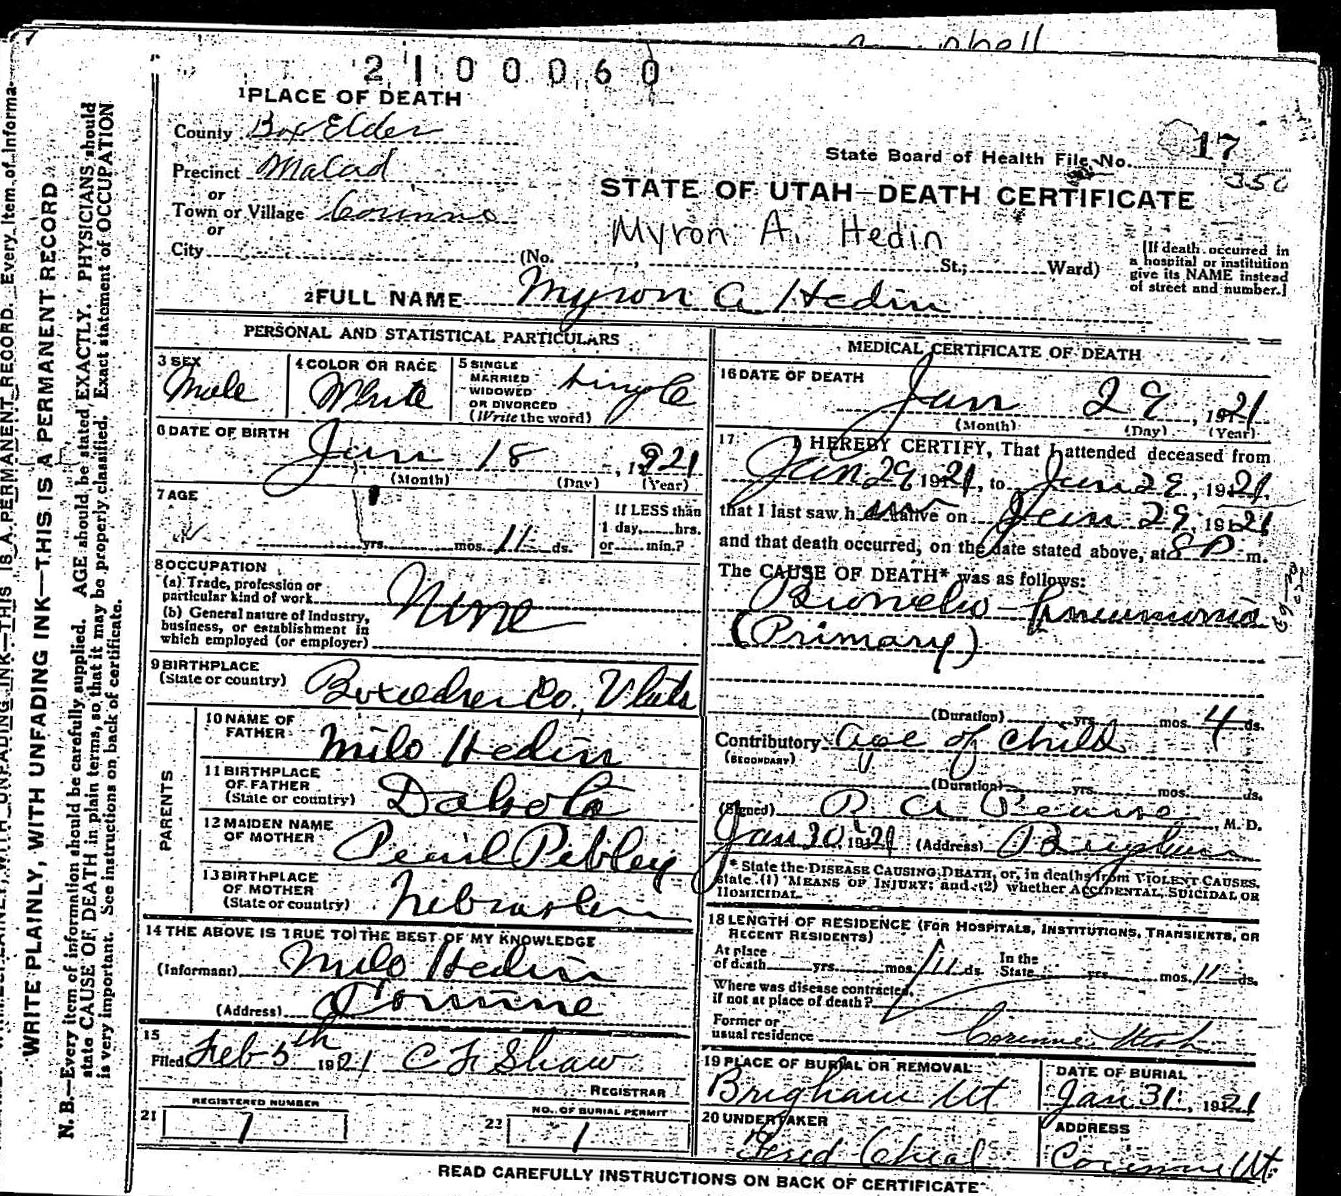 2100060
1 PLACE OF DEATH
County Box Elder
Precinct Malad
or
Town or Village Corinne
or
City (No. St.; Ward)
State Board of Health File No. 17
350
STATE OF UTAH—DEATH CERTIFICATE
Myron A. Hedin
[If death occurred in
a hospital or institution
give its NAME instead
of street and number.]
2 FULL NAME Myron A Hedin
PERSONAL AND STATISTICAL PARTICULARS
3 SEX
Male
4 COLOR OR RACE
White
5 SINGLE
MARRIED
WIDOWED
OR DIVORCED
(Write the word)
Single
6 DATE OF BIRTH
Jan 18, 1921
(Month) (Day) (Year)
7 AGE
yrs. mos. 11 ds.
If LESS than
1 day, hrs.
or min.?
8 OCCUPATION
(a) Trade, profession or
particular kind of work
None
(b) General nature of Industry,
business, or establishment in
which employed (or employer)
9 BIRTHPLACE
(State or country) Boxelder Co., Utah
PARENTS
10 NAME OF
FATHER Milo Hedin
11 BIRTHPLACE
OF FATHER
(State or country) Dakota
12 MAIDEN NAME
OF MOTHER Pearl Pebley
13 BIRTHPLACE
OF MOTHER
(State or country) Nebraska
14 THE ABOVE IS TRUE TO THE BEST OF MY KNOWLEDGE
(Informant) Milo Hedin
(Address) Corinne
15
Filed Feb 5th 1921 C F Shaw
REGISTRAR
21 REGISTERED NUMBER
1
22 NO. OF BURIAL PERMIT
1
MEDICAL CERTIFICATE OF DEATH
16 DATE OF DEATH
Jan 29, 1921
(Month) (Day) (Year)
17 I HEREBY CERTIFY, That I attended deceased from
Jan 29 1921, to Jan 29, 1921
that I last saw him alive on Jan 29, 1921
and that death occurred, on the date stated above, at 8 P m.
The CAUSE OF DEATH* was as follows:
Broncho-pneumonia
(Primary)
(Duration) yrs. mos. 4 ds.
Contributory Age of child
(SECONDARY)
(Duration) yrs. mos. ds.
(Signed) R A Pearse, M. D.
Jan 30 1921 (Address) Brigham
* State the DISEASE CAUSING DEATH, or, in deaths from VIOLENT CAUSES,
state (1) MEANS OF INJURY; and (2) whether ACCIDENTAL, SUICIDAL OR
HOMICIDAL.
18 LENGTH OF RESIDENCE (FOR HOSPITALS, INSTITUTIONS, TRANSIENTS, OR
RECENT RESIDENTS)
At place
of death yrs. mos. 11 ds.
In the
State yrs. mos. 11 ds.
Where was disease contracted,
if not at place of death?
Former or
usual residence Corinne Utah
19 PLACE OF BURIAL OR REMOVAL
Brigham Ut
DATE OF BURIAL
Jan 31, 1921
20 UNDERTAKER
Fred Cheal
ADDRESS
Corinne Ut.
READ CAREFULLY INSTRUCTIONS ON BACK OF CERTIFICATE
WRITE PLAINLY, WITH UNFADING INK—THIS IS A PERMANENT RECORD
N. B.—Every item of information should be carefully supplied. AGE should be stated EXACTLY. PHYSICIANS should
state CAUSE OF DEATH in plain terms, so that it may be properly classified. Exact statement of OCCUPATION
is very important. See instructions on back of certificate.